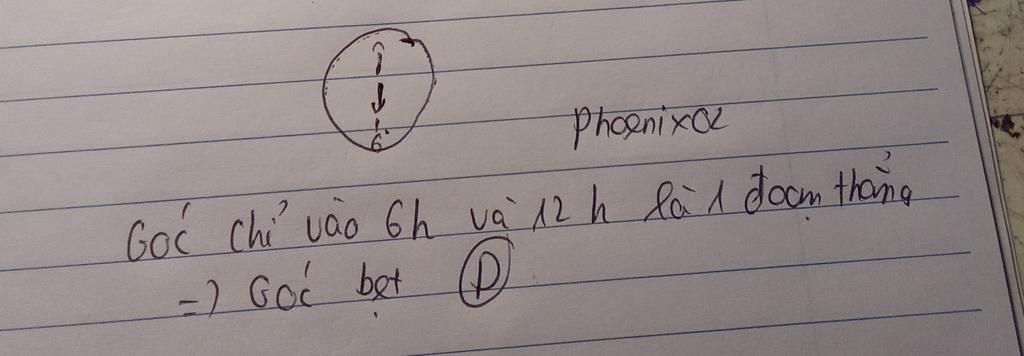 6
Phoenix02
Góc chỉ vào 6h và 12h là 1 đoạn thẳng
=) Góc bẹt Ⓓ